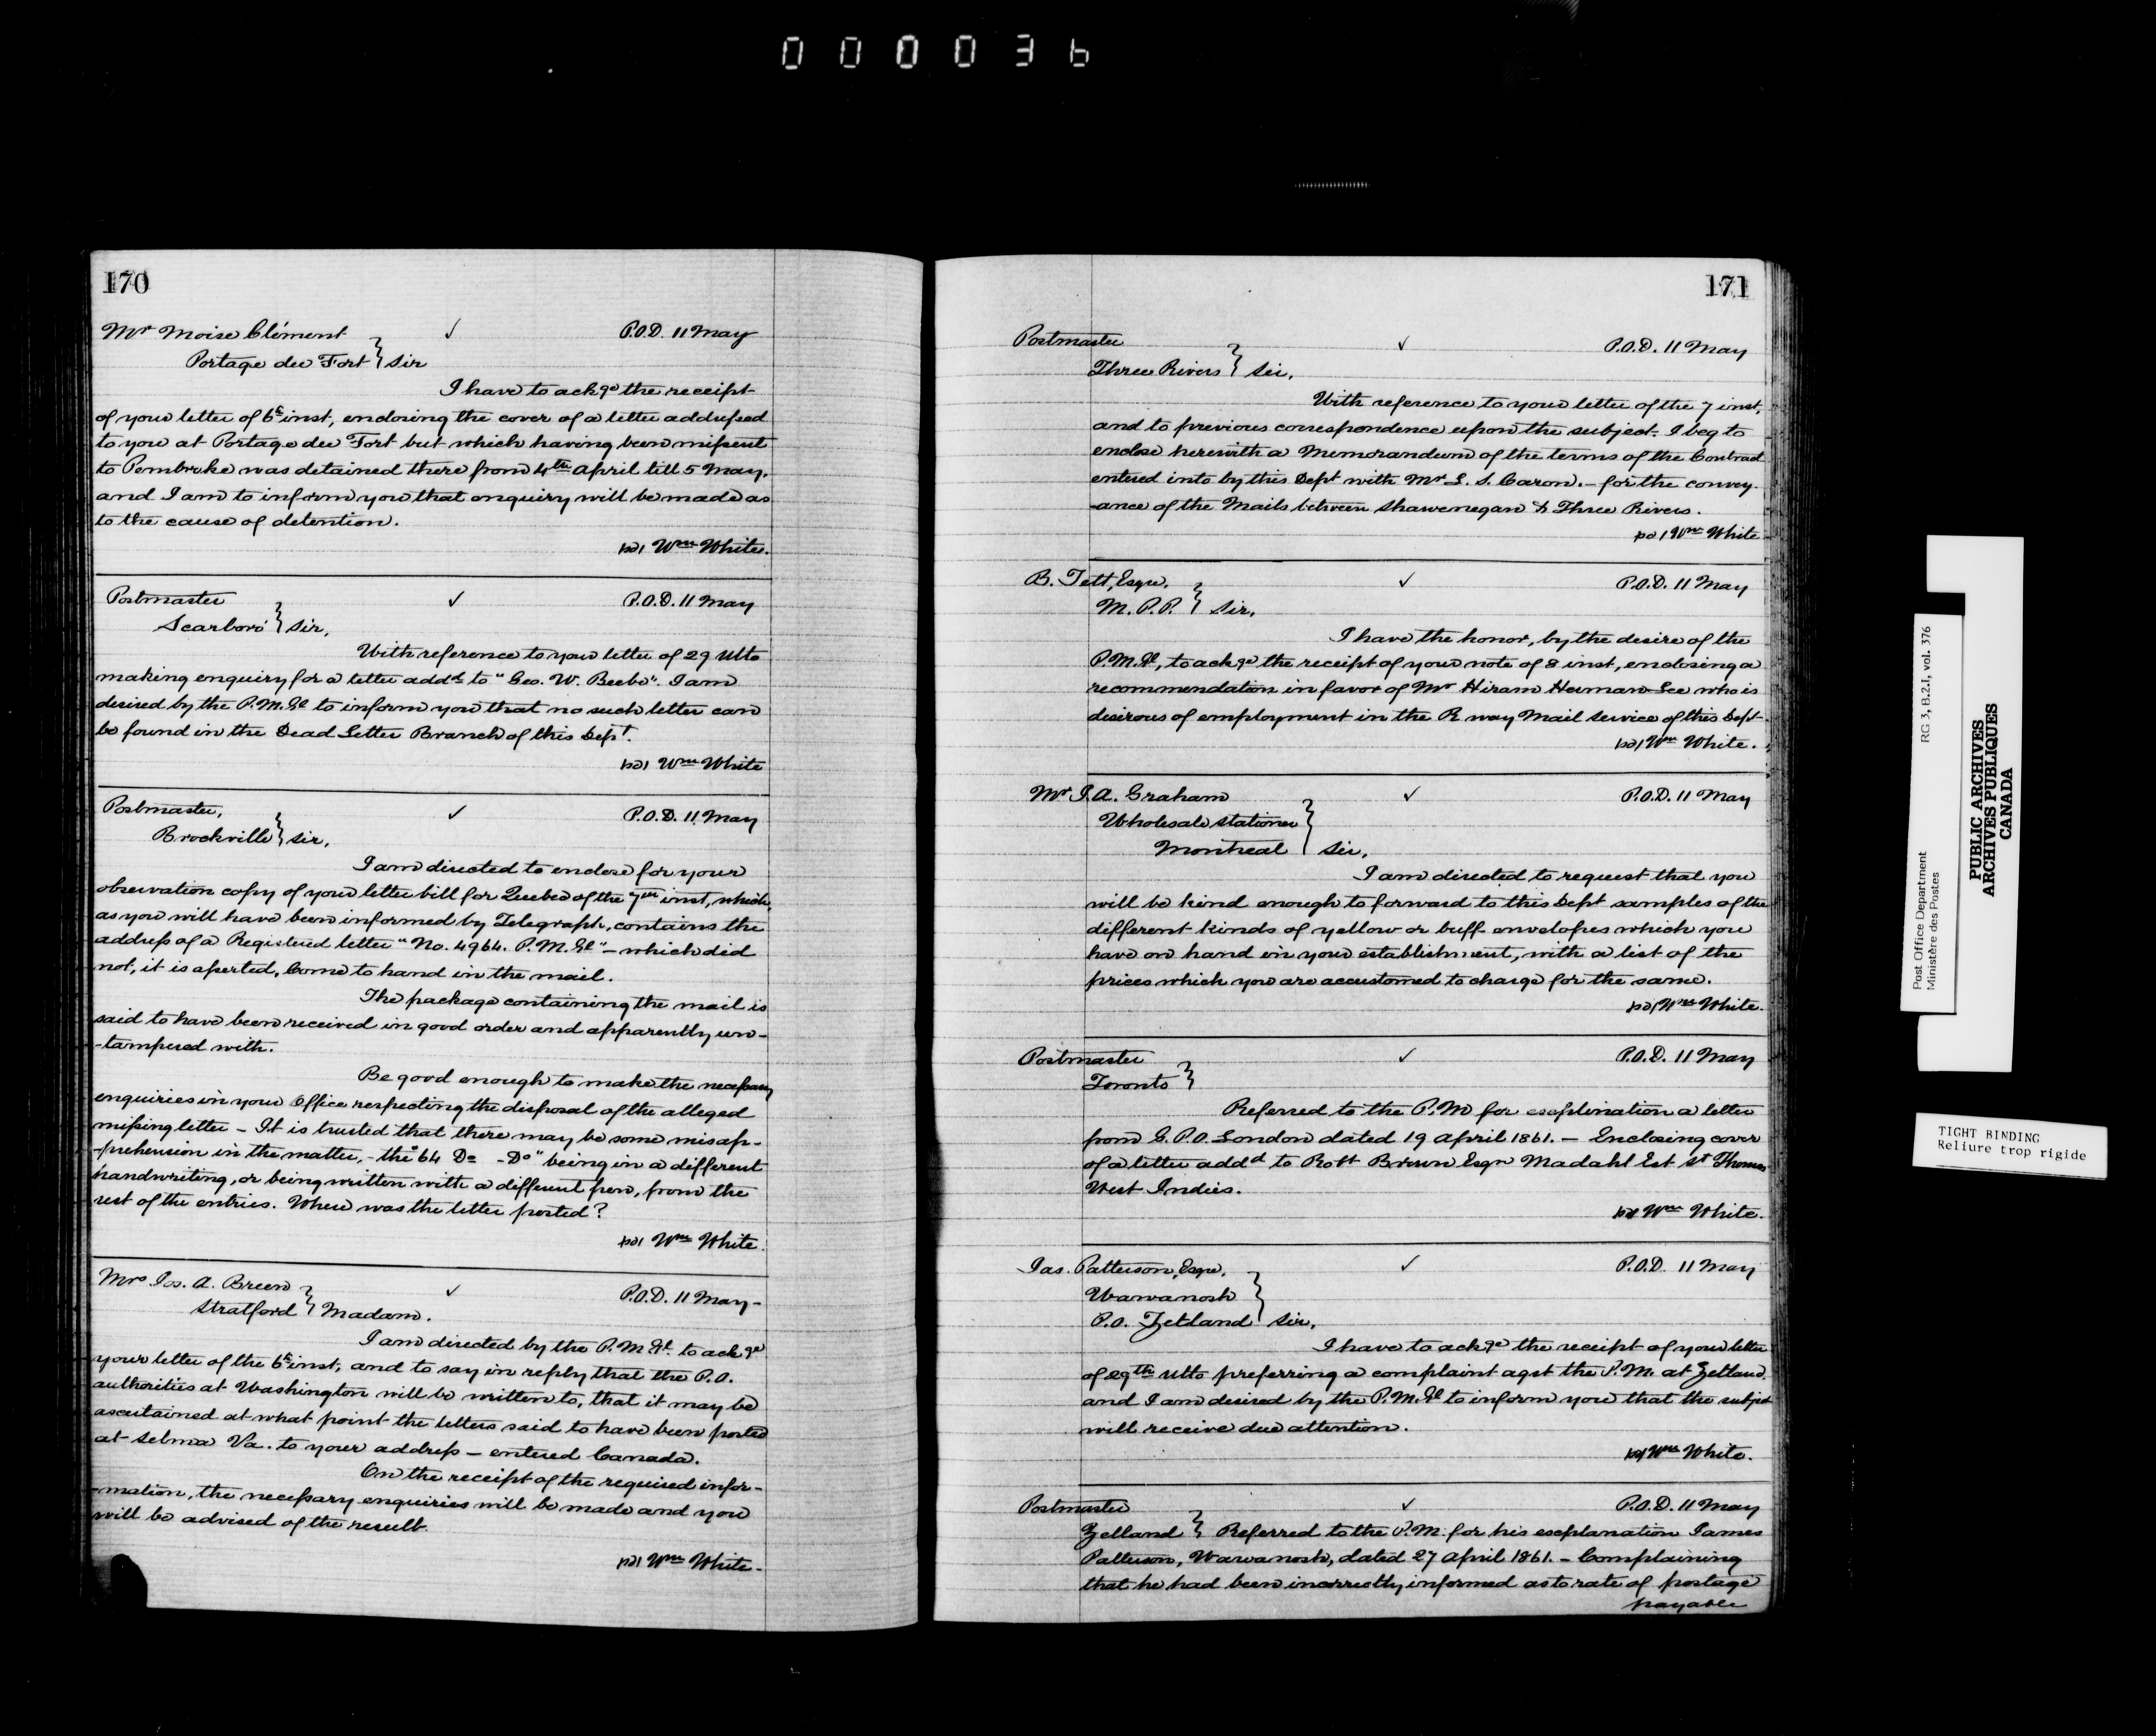 000036
170
Mr Moise Clément ✓ P.O.D. 11 May
Portage du Fort } Sir
I have to ackge the receipt
of your letter of 6th inst, enclosing the cover of a letter addressed
to you at Portage du Fort but which having been missent
to Pembroke was detained there from 4th April till 5 May,
and I am to inform you that enquiry will be made as
to the cause of detention.
Wm White.
Postmaster ✓ P.O.D. 11 May
Scarboro' } Sir,
With reference to your letter of 29 Ulto
making enquiry for a letter addd to "Geo. W. Beebe". I am
desired by the P.M.Gl to inform you that no such letter can
be found in the Dead Letter Branch of this Dept.
Wm White
Postmaster, ✓ P.O.D. 11 May
Brockville } Sir,
I am directed to enclose for your
observation copy of your letter bill for Quebec of the 7th inst, which,
as you will have been informed by Telegraph, contains the
address of a Registered letter "No. 4964. P.M.Gl" – which did
not, it is asserted, Come to hand in the mail.
The package containing the mail is
said to have been received in good order and apparently un-
-tampered with.
Be good enough to make the necessary
enquiries in your Office respecting the disposal of the alleged
missing letter – It is trusted that there may be some misap-
-prehension in the matter, - the "64 Do - Do" being in a different
handwriting, or being written with a different pen, from the
rest of the entries. When was the letter posted?
Wm White.
Mrs Jos. A. Breen ✓ P.O.D. 11 May –
Stratford } Madam.
I am directed by the P.M.Gl. to ackge
your letter of the 6th inst, and to say in reply that the P.O.
authorities at Washington will be written to, that it may be
ascertained at what point the letters said to have been posted
at Selma Va. to your address – entered Canada.
On the receipt of the required infor-
-mation, the necessary enquiries will be made and you
will be advised of the result.
Wm White –
171
Postmaster ✓ P.O.D. 11 May
Three Rivers } Sir,
With reference to your letter of the 7 inst,
and to previous correspondence upon the subject. I beg to
enclose herewith a Memorandum of the terms of the Contract
entered into by this Dept with Mr L. S. Caron. – for the convey-
-ance of the Mails between Shawenegan & Three Rivers.
Wm White
B. Tett, Esqre. ✓ P.O.D. 11 May
M.P.P. } Sir,
I have the honor, by the desire of the
P.M.Gl, to ackge the receipt of your note of 8 inst, enclosing a
recommendation in favor of Mr Hiram Herman Lee who is
desirous of employment in the R way Mail Service of this Dept.
Wm White.
Mr J. A. Graham ✓ P.O.D. 11 May
Wholesale Stationer
Montreal } Sir,
I am directed to request that you
will be kind enough to forward to this Dept samples of the
different kinds of yellow or buff envelopes which you
have on hand in your establishment, with a list of the
prices which you are accustomed to charge for the same.
Wm White.
Postmaster ✓ P.O.D. 11 May
Toronto }
Referred to the P.M for explination a letter
from G.P.O. London dated 19 April 1861. – Enclosing cover
of a letter addd to Robt Brown Esqr Madahl Est St Thomas
West Indies.
Wm White.
Jas. Patterson, Esqre. ✓ P.O.D. 11 May
Wawanosh
P.O. Zetland } Sir,
I have to ackge the receipt of your letter
of 29th Ulto preferring a complaint agst the P.M. at Zetland,
and I am desired by the P.M.Gl to inform you that the subject
will receive due attention.
Wm White.
Postmaster ✓ P.O.D. 11 May
Zetland } Referred to the P.M. for his explanation James
Patterson, Wawanosh, dated 27 April 1861. – Complaining
that he had been incorrectly informed as to rate of postage
payable
Post Office Department RG 3, B.2.1, vol. 376
Ministère des Postes
PUBLIC ARCHIVES
ARCHIVES PUBLIQUES
CANADA
TIGHT BINDING
Reliure trop rigide